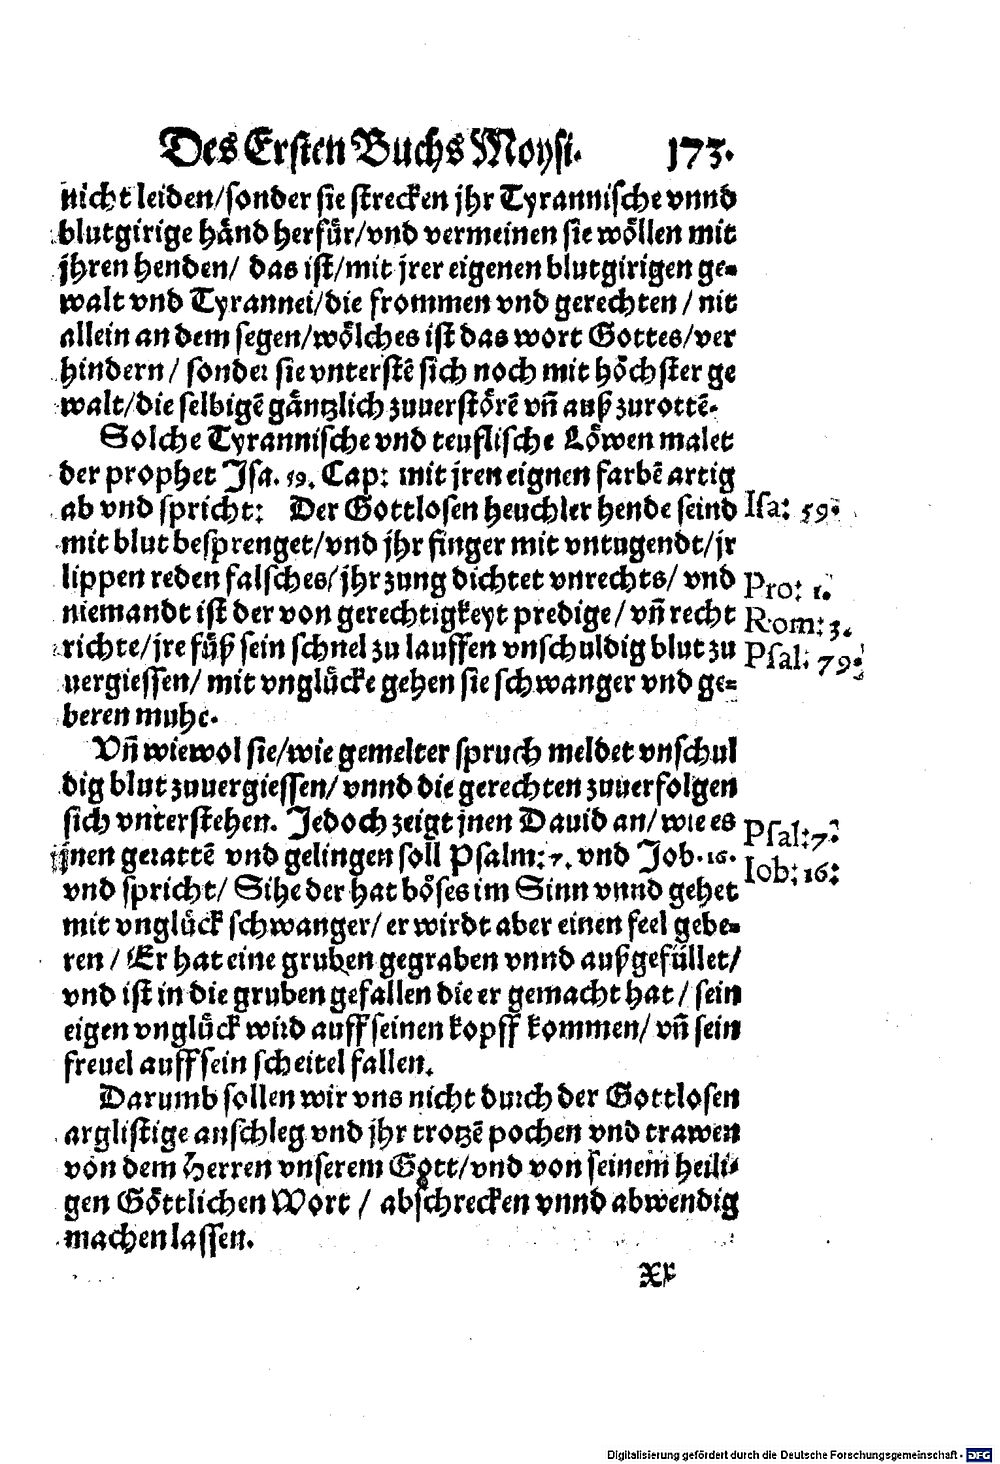 Des Ersten Buchs Moysi. 173.
nicht leiden/sonder sie strecken jhr Tyrannische vnnd
blutgirige händ herfür/vnd vermeinen sie wöllen mit
jhren henden/ das ist/mit jrer eigenen blutgirigen ge-
walt vnd Tyrannei/die frommen vnd gerechten / nit
allein an dem segen/wölches ist das wort Gottes/ver
hindern / sonder sie vnterstē sich noch mit höchster ge
walt/die selbigē gäntzlich zuuerstörē vñ auß zurottē.
Solche Tyrannische vnd teuflische Löwen malet
der prophet Isa. 59. Cap: mit jren eignen farbē artig
ab vnd spricht: Der Gottlosen heuchler hende seind
Isa: 59:
mit blut besprenget/vnd jhr finger mit vntugendt/jr
lippen reden falsches/jhr zung dichtet vnrechts/ vnd
Pro: 1.
niemandt ist der von gerechtigkeyt predige / vñ recht
Rom: 3.
richte/jre füß sein schnel zu lauffen vnschuldig blut zu
Psal: 79:
uergiessen/ mit vnglücke gehen sie schwanger vnd ge-
beren muhe.
Vñ wiewol sie/wie gemelter spruch meldet vnschul
dig blut zuuergiessen/ vnnd die gerechten zuuerfolgen
sich vnterstehen. Jedoch zeigt jnen Dauid an/ wie es
Psal:7:
jnen gerattē vnd gelingen soll Psalm: 7. vnd Job. 16.
Iob: 16:
vnd spricht/ Sihe der hat böses im Sinn vnnd gehet
mit vnglück schwanger/ er wirdt aber einen feel gebe-
ren / Er hat eine gruben gegraben vnnd außgefüllet/
vnd ist in die gruben gefallen die er gemacht hat / sein
eigen vnglück wird auff seinen kopff kommen/ vñ sein
freuel auff sein scheitel fallen.
Darumb sollen wir vns nicht durch der Gottlosen
arglistige anschleg vnd jhr trotzē pochen vnd trawen
von dem Herren vnserem Gott/vnd von seinem heili-
gen Göttlichen Wort / abschrecken vnnd abwendig
machen lassen.
Xx
Digitalisierung gefördert durch die Deutsche Forschungsgemeinschaft - DFG